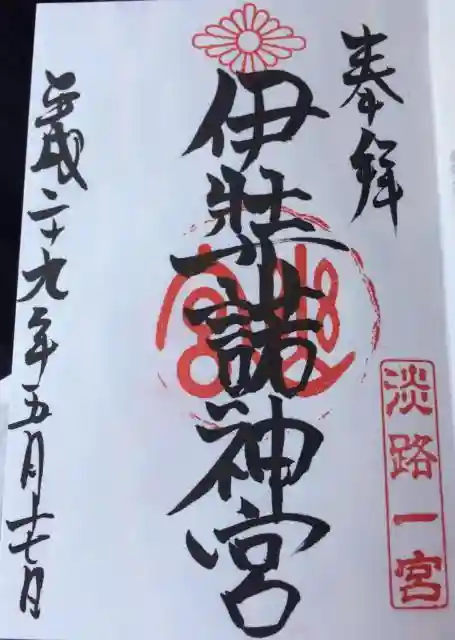 奉拝
淡路一宮
伊弉諾神宮
平成二十九年五月十七日